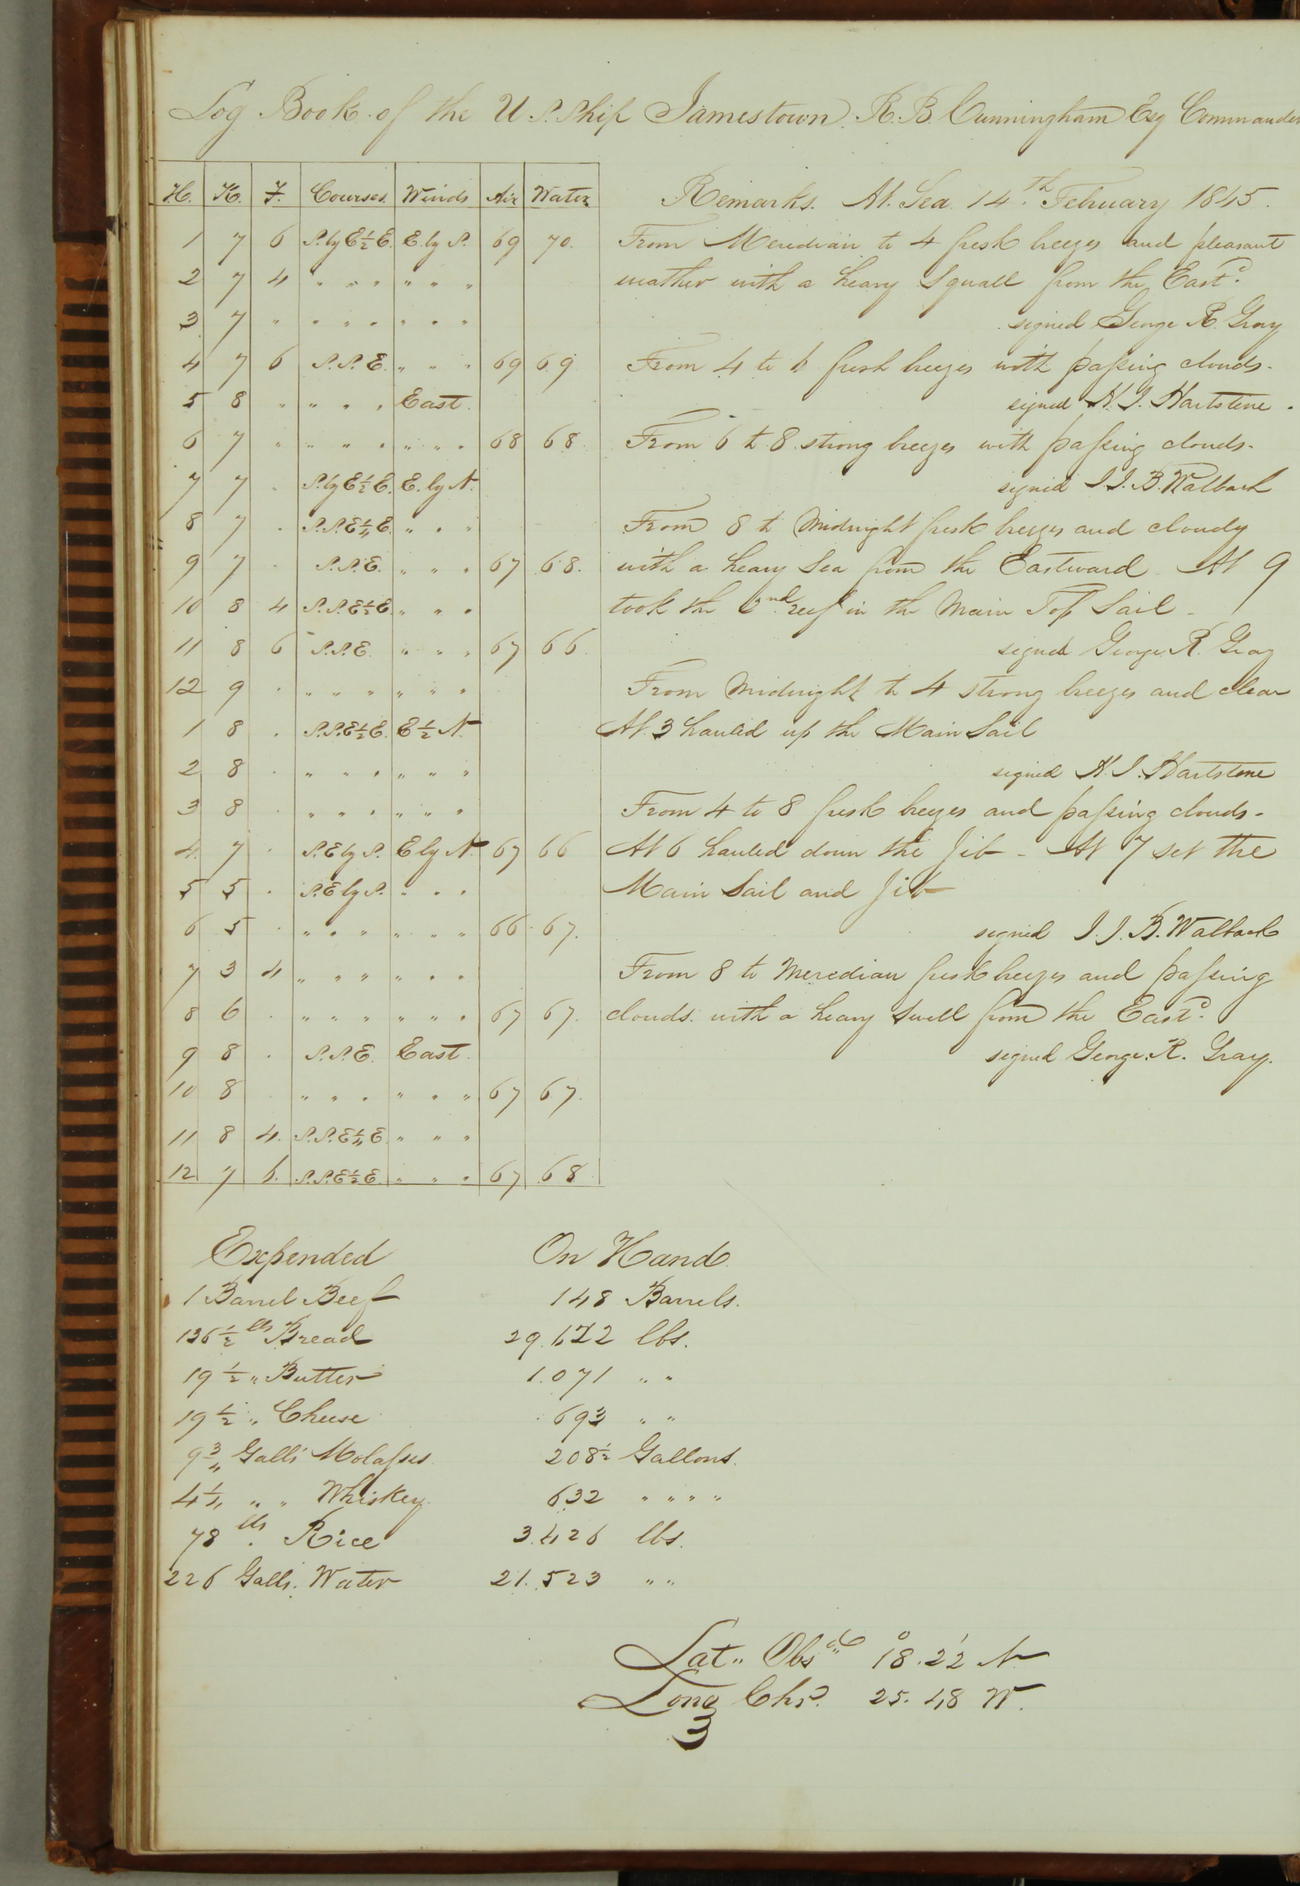 Log Book of the U.S. Ship Jamestown. R. B. Cunningham Esq Commander
H. K. F. Courses. Winds Air Water
1 7 6 S. by E ½ E. E. by S. 69 70.
2 7 4 " " " " " "
3 7 " " " " " " "
4 7 6 S.S.E. " " " 69 69
5 8 " " " " East.
6 7 " " " " " " " 68 68
7 7 . S. by E ½ E. E. by N.
8 7 . S.S.E ¼ E. " " "
9 7 . S.S.E. " " " 67 68.
10 8 4 S.S.E ½ E " " "
11 8 6 S.S.E. " " " 67 66
12 9 . " " " " " "
1 8 . S.S.E ½ E. E ½ N.
2 8 . " " " " " "
3 8 . " " " " " "
4 7 . S.E by S. E by N 67 66
5 5 . S.E by S. " " "
6 5 . " " " " " " 66 67.
7 3 4 " " " " " "
8 6 . " " " " " " 67 67.
9 8 . S.S.E. East.
10 8 . " " " " " " 67 67.
11 8 4. S.S.E ¼ E " " "
12 7 6. S.S.E ½ E. " " " 67 68
Remarks. At Sea 14th February 1845.
From Meridian to 4 fresh breezes and pleasant
weather with a heavy Squall from the Eastd.
signed George R. Gray
From 4 to 6 fresh breezes with passing clouds.
signed H. J. Hartstene.
From 6 to 8 strong breezes with passing clouds.
signed J. J. B. Walbach
From 8 to Midnight fresh breezes and cloudy
with a heavy Sea from the Eastward. At 9
took the 2nd reef in the Main Top Sail.
signed George R. Gray
From Midnight to 4 strong breezes and clear
At 3 hauled up the Main Sail
signed H. J. Hartstene
From 4 to 8 fresh breezes and passing clouds.
At 6 hauled down the Jib - At 7 set the
Main Sail and Jib
signed J. J. B. Walbach
From 8 to Meredian fresh breezes and passing
clouds. with a heavy Swell from the Eastd.
signed George. R. Gray.
Expended On Hand
1 Barrel Beef 148 Barrels.
136 ½ lbs Bread 29.672 lbs.
19 ½ " Butter 1.071 " "
19 ½ " Cheese 693 " "
9 ¾ Galls Molasses 208 ½ Gallons.
4 ¼ " " Whiskey 632 " " " "
78 lbs. Rice 3.426 lbs.
226 Galls. Water 21.523 " "
Lat. Obsd 18°.22' N
Long Chr. 25.48 W.